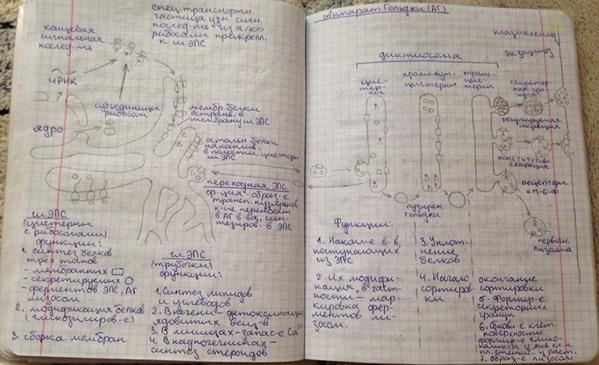 концевая
сигнальная
послед-ть
спец. транспортн.
частица узн. сигн.
послед-ть из а/к
рибосомы прикрепл.
к ш ЭПС
мРНК
субъединицы
рибосом
ядро
мембр. белки
встраив. в
мембрану ш ЭПС
остальн. белки
накаплив.
в полости цистерн
ш ЭПС
переходная ЭПС
образ-е
трансп. пузырьков
в АГ в-ва, син-
тезиров. в ЭПС
ш. ЭПС
(цистерны
с рибосомами)
функции:
1. синтез белков
трёх типов
- мембранных
- секретируемых
- ферментов ЭПС, АГ
лизосом
2. модификация белков
(гликозилиров-е)
3. сборка мембран
гл. ЭПС
(трубочки)
функции:
1. Синтез липидов
и углеводов
2. В печени - детоксикация
ядовитых вещ-в
3. В мышцах - запас-е Ca
4. В надпочечниках -
синтез стероидов
Аппарат Гольджи (АГ)
диктиосома
цис-
промежут.
цистерны
транс
цистерны
плазмалемма
экзоцитоз
секретор-
ная гра-
нула
регулируемая
секреция
конститутивн.
секреция
рецепторы
к м-6-ф
первичн.
лизосома
пузырёк
Гольджи
Функции:
1. Накопл-е в-в,
поступающих
из ЭПС
2. Их модифи-
кация, в част-
ности - мар-
кировка фер-
ментов ли-
зосом.
3. Уплот-
нение
белков
4. Начало
сортиров-
ки
окончание
сортировки
5. Формир-е
секреторных
гранул
6. Обновл-е клет.
поверхности
формир-е глико-
каликса у жив. кл. и
кл. стенки - у раст.
7. образ-е лизосом